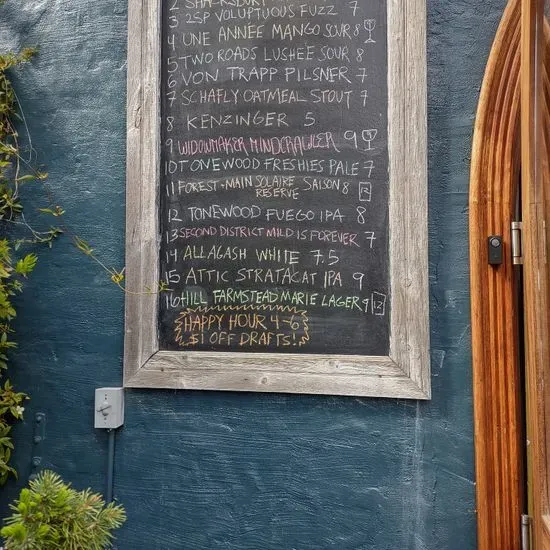 2 SHACKSBURY
3 2SP VOLUPTUOUS FUZZ 7
4 UNE ANNÉE MANGO SOUR 8
5 TWO ROADS LUSHEÉ SOUR 8
6 VON TRAPP PILSNER 7
7 SCHAFLY OATMEAL STOUT 7
8 KENZINGER 5
9 WIDOWMAKER MINDCRAWLER 9
10 TONEWOOD FRESHIES PALE 7
11 FOREST + MAIN SOLAIRE RESERVE SAISON 8 12
12 TONEWOOD FUEGO IPA 8
13 SECOND DISTRICT MILD IS FOREVER 7
14 ALLAGASH WHITE 7.5
15 ATTIC STRATACAT IPA 9
16 HILL FARMSTEAD MARIE LAGER 9 12
HAPPY HOUR 4-6
$1 OFF DRAFTS!